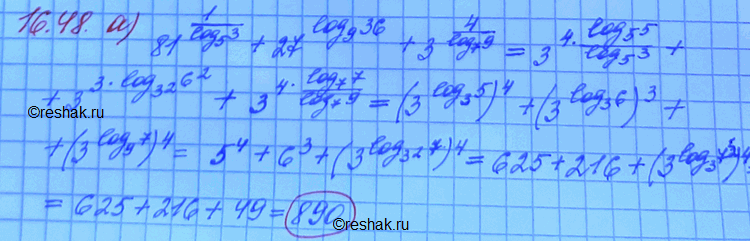 16.48. а) 81^(1/log₅3) + 27^(log₉36) + 3^(4/log₇9) = 3^(4·log₅5/log₅3) +
+ 3^(3·log_(3²)6²) + 3^(4·log₇7/log₇9) = (3^(log₃5))⁴ + (3^(log₃6))³ +
+ (3^(log₉7))⁴ = 5⁴ + 6³ + (3^(log_(3²)7))⁴ = 625 + 216 + (3^(log₃7^(1/2)))⁴
= 625 + 216 + 49 = 890
©reshak.ru
©reshak.ru